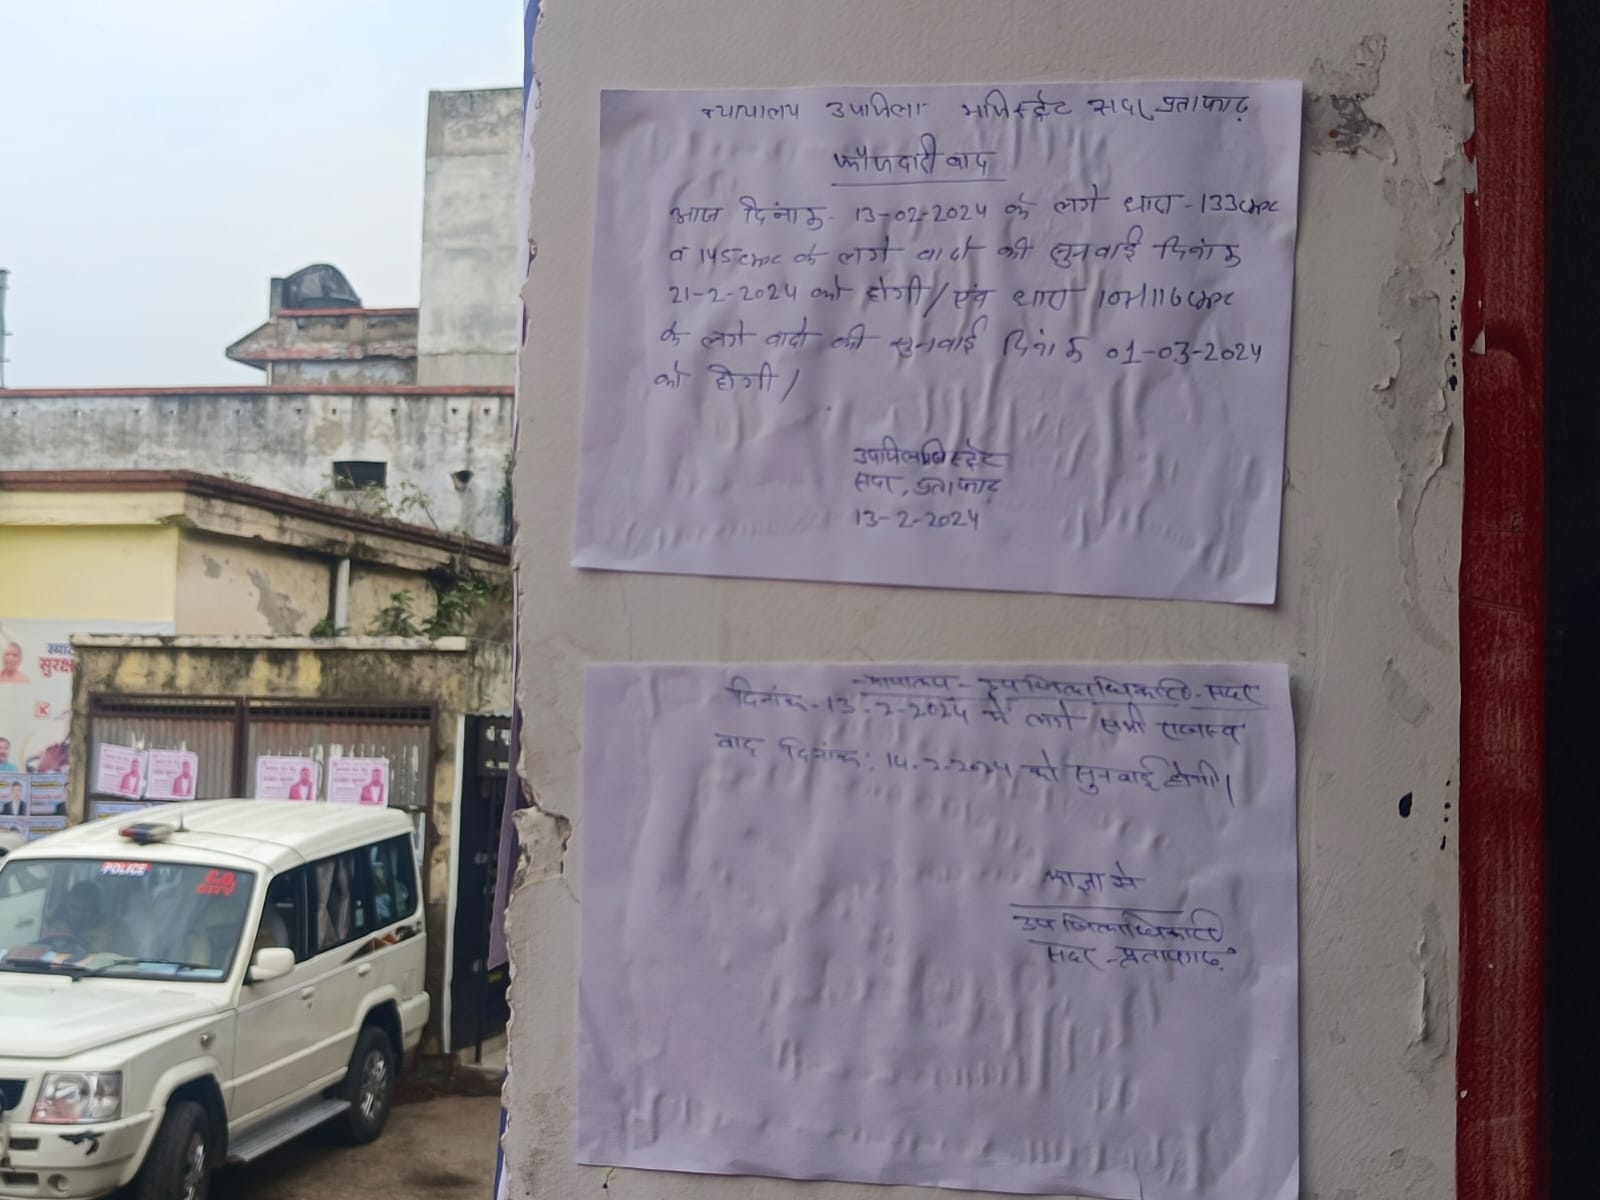 न्यायालय उपजिला मजिस्ट्रेट सदर प्रतापगढ़
फौजदारी वाद
आज दिनांक- 13-02-2024 के लगे धारा-133crpc
व 145crpc के लगे वादो की सुनवाई दिनांक
21-2-2024 को होगी/ एंव धारा 107/116crpc
के लगे वादो की सुनवाई दिनांक 01-03-2024
को होगी/
उपजिलामजिस्ट्रेट
सदर, प्रतापगढ़
13-2-2024
न्यायालय - उप जिलाधिकारी - सदर
दिनांक-13.2-2024 में लगे सभी राजस्व
वाद दिनांक: 14-2-2024 को सुनवाई होगी।
आज्ञा से
उप जिलाधिकारी
सदर - प्रतापगढ़
POLICE
C.O.
CITY
स्मार्ट
सुरक्ष